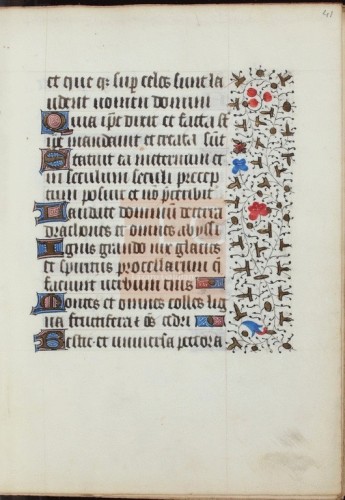 41
et que q; sup celos sunt la
udent nomen domini
Quia ip̄e dixit et facta sūt
ip̄e mandauit et creata sūt
Statuit ea in eternum et
in seculum seculi precep
tum posuit et nō p̄teribit
Laudate dominū de terra
dracōnes et omnes abyssi
Ignis grando nix glacies
et spiritus procellarum q̄
faciunt uerbum eius
Montes et omnes colles lig
na fructifera et ōs cedri
Bestie et uniuersa peccora